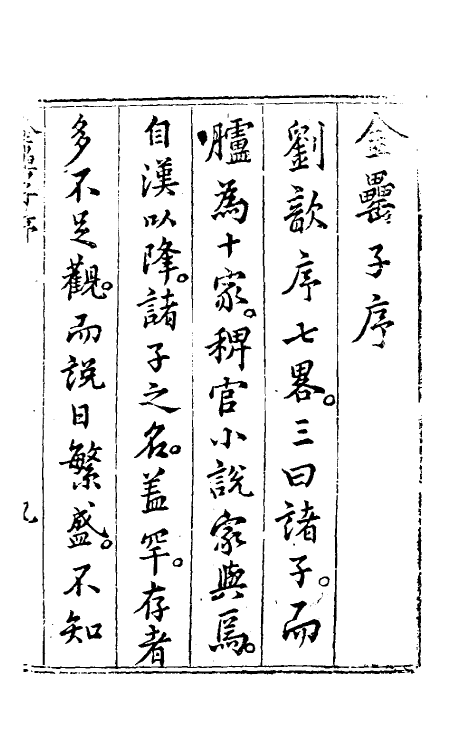 金罍子序
劉歆序七畧。三曰諸子。而
臚為十家。稗官小說家與焉。
自漢以降。諸子之名。葢罕。存者
多不足觀。而說日繁盛。不知
金罍子序